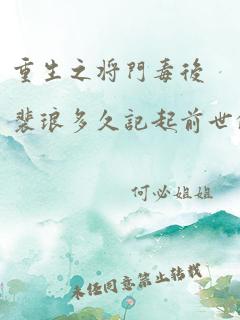 重生之将門毒後
裴琅多久記起前世
何必姐姐
未经同意禁止转载